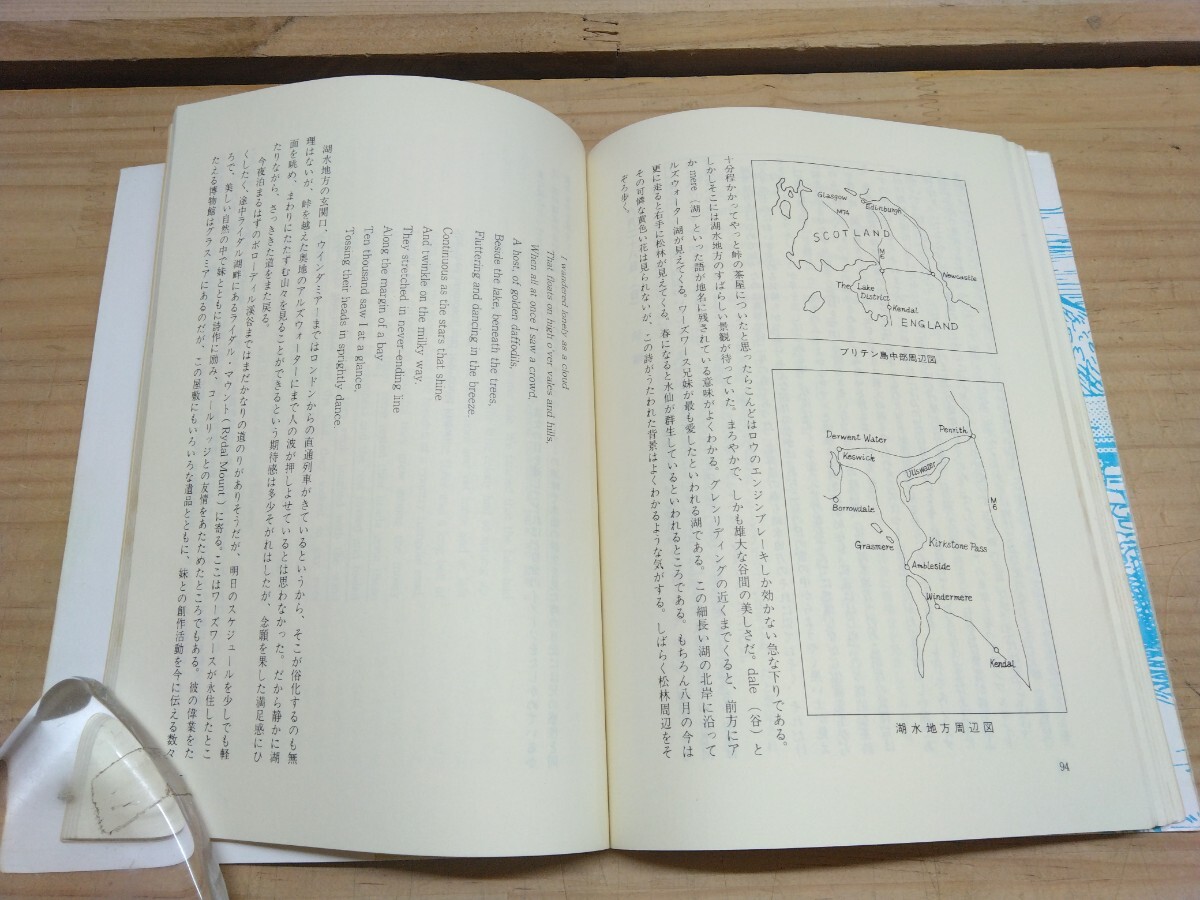 Glasgow
Edinburgh
M74
SCOTLAND
M6
Newcastle
The Lake
District
Kendal
ENGLAND
ブリテン島中部周辺図
Penrith
Derwent Water
Keswick
Ullswater
M6
Borrowdale
Grasmere
Kirkstone Pass
Ambleside
Windermere
Kendal
湖水地方周辺図
94
十分程かかってやっと峠の茶屋についたと思ったらこんどはロウのエンジンブレーキしか効かない急な下りである。
しかしそこには湖水地方のすばらしい景観が待っていた。まろやかで、しかも雄大な谷間の美しさだ。dale（谷）と
か mere（湖）といった語が地名に残されている意味がよくわかる。グレンリディングの近くまでくると、前方にア
ルズウォーター湖が見えてくる。ワーズワース兄妹が最も愛したといわれる湖である。この細長い湖の北岸に沿って
更に走ると右手に松林が見えてくる。春になると水仙が群生しているといわれるところである。もちろん八月の今は
その可憐な黄色い花は見られないが、この詩がうたわれた背景はよくわかるような気がする。しばらく松林周辺をそ
ぞろ歩く。
I wandered lonely as a cloud
That floats on high o'er vales and hills,
When all at once I saw a crowd,
A host, of golden daffodils,
Beside the lake, beneath the trees,
Fluttering and dancing in the breeze.
Continuous as the stars that shine
And twinkle on the milky way,
They stretched in never-ending line
Along the margin of a bay
Ten thousand saw I at a glance,
Tossing their heads in sprightly dance.
湖水地方の玄関口、ウインダミアーまではロンドンからの直通列車がきているというから、そこが俗化するのも無
理はないが、峠を越えた奥地のアルズウォーターにまで人の波が押しよせているとは思わなかった。だから静かに湖
面を眺め、まわりにたたずむ山々を見ることができるという期待感は多少そがれはしたが、念願を果した満足感にひ
たりながら、さっききた道をまた戻る。
今夜泊まるはずのボローディル渓谷まではまだかなりの道のりがありそうだが、明日のスケジュールを少しでも軽
くしたく、途中ライダル湖畔にあるライダル・マウント（Rydal Mount）に寄る。ここはワーズワースが永住したとこ
ろで、美しい自然の中で妹とともに詩作に励み、コールリッジとの友情をあたためたところでもある。彼の偉業をた
たえる博物館はグラスミアにあるのだが、この屋敷にもいろいろな遺品とともに、妹との創作活動を今に伝える数々